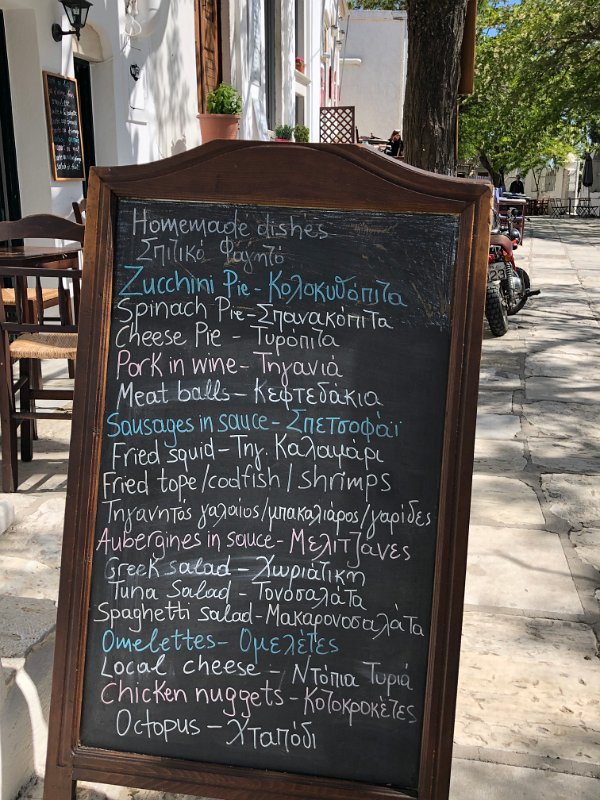 Homemade dishes
Σπιτικό Φαγητό
Zucchini Pie - Κολοκυθόπιτα
Spinach Pie - Σπανακόπιτα
Cheese Pie - Τυρόπιτα
Pork in wine - Τηγανιά
Meat balls - Κεφτεδάκια
Sausages in sauce - Σπετσοφάι
Fried squid - Τηγ. Καλαμάρι
Fried tope/codfish/shrimps
Τηγανητός γαλαίος/μπακαλιάρος/γαρίδες
Aubergines in sauce - Μελιτζάνες
Greek salad - Χωριάτικη
Tuna Salad - Τονοσαλάτα
Spaghetti salad - Μακαρονοσαλάτα
Omelettes - Ομελέτες
Local cheese - Ντόπια Τυριά
Chicken nuggets - Κοτοκροκέτες
Octopus - Χταπόδι
23